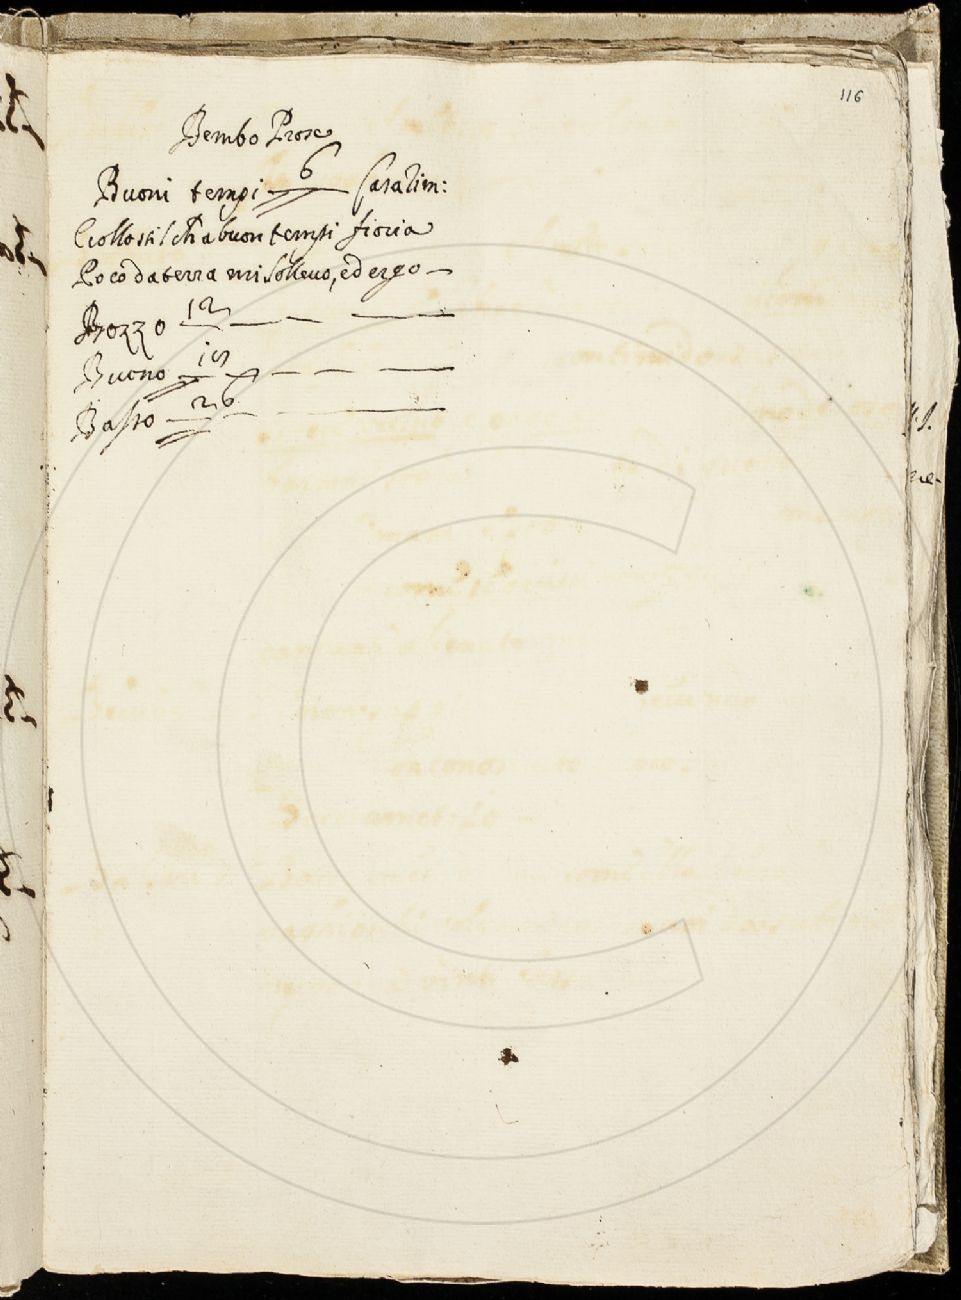 116
Bembo Prose
Buoni tempi 6
Collo stil ch a buon tempi fioria
Poco da terra mi sollevo, ed ergo
Bozzo 12
Buono
Basso 26